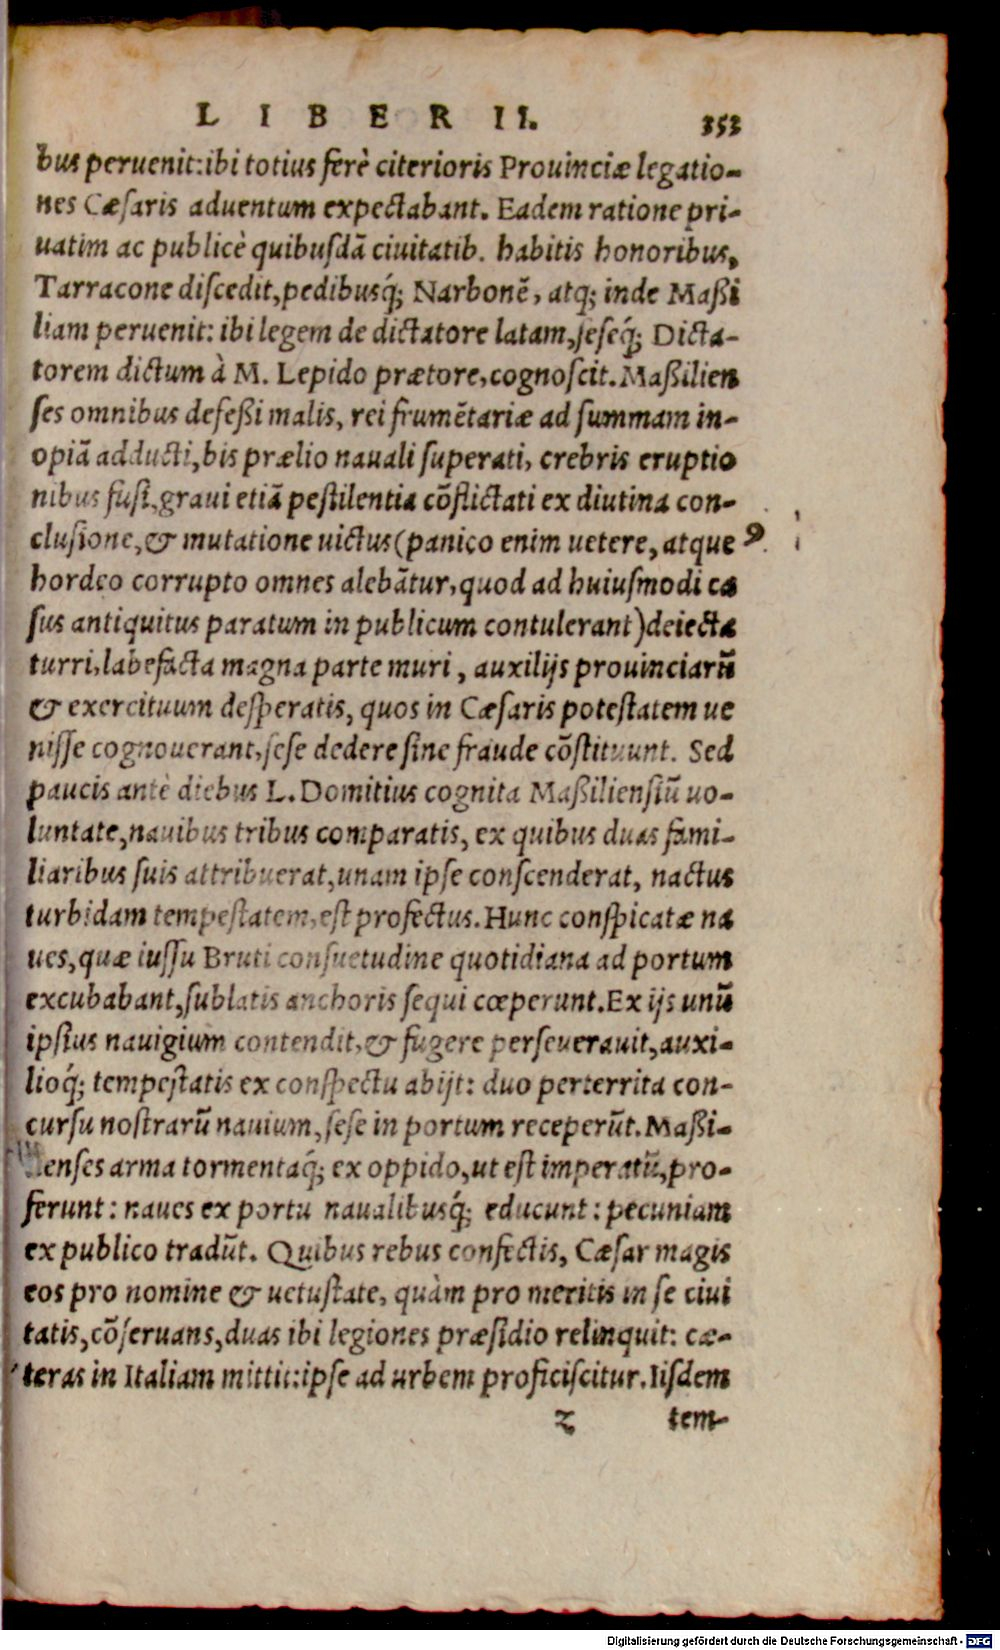 LIBER II. 353
bus peruenit: ibi totius ferè citerioris Prouinciæ legatio-
nes Cæſaris aduentum expectabant. Eadem ratione pri-
uatim ac publicè quibuſdã ciuitatib. habitis honoribus,
Tarracone diſcedit, pedibusq́; Narbonẽ, atq; inde Maßi
liam peruenit: ibi legem de dictatore latam, ſeſeq́; Dicta-
torem dictum à M. Lepido prætore, cognoſcit. Maßilien
ſes omnibus defeßi malis, rei frumẽtariæ ad ſummam in-
opiã adducti, bis prælio nauali ſuperati, crebris eruptio
nibus fuſi, graui etiã peſtilentia cõflictati ex diutina con-
cluſione, & mutatione uictus (panico enim uetere, atque 9.
hordeo corrupto omnes alebãtur, quod ad huiuſmodi ca
ſus antiquitus paratum in publicum contulerant) deiecta
turri, labefacta magna parte muri, auxilijs prouinciarũ
& exercituum deſperatis, quos in Cæſaris poteſtatem ue
niſſe cognouerant, ſeſe dedere ſine fraude cõſtituunt. Sed
paucis antè diebus L. Domitius cognita Maßilienſiũ uo-
luntate, nauibus tribus comparatis, ex quibus duas fami-
liaribus ſuis attribuerat, unam ipſe conſcenderat, nactus
turbidam tempeſtatem, eſt profectus. Hunc conſpicatæ na
ues, quæ iuſſu Bruti conſuetudine quotidiana ad portum
excubabant, ſublatis anchoris ſequi cœperunt. Ex ijs unũ
ipſius nauigium contendit, & fugere perſeuerauit, auxi-
lioq́; tempeſtatis ex conſpectu abijt: duo perterrita con-
curſu noſtrarũ nauium, ſeſe in portum receperũt. Maßi-
lienſes arma tormentaq́; ex oppido, ut eſt imperatũ, pro-
ferunt: naues ex portu naualibusq́; educunt: pecuniam
ex publico tradũt. Quibus rebus confectis, Cæſar magis
eos pro nomine & uetuſtate, quàm pro meritis in ſe ciui
tatis, cõſeruans, duas ibi legiones præſidio relinquit: cæ-
teras in Italiam mittit: ipſe ad urbem proficiſcitur. Iiſdem
z tem-
Digitalisierung gefördert durch die Deutsche Forschungsgemeinschaft - DFG